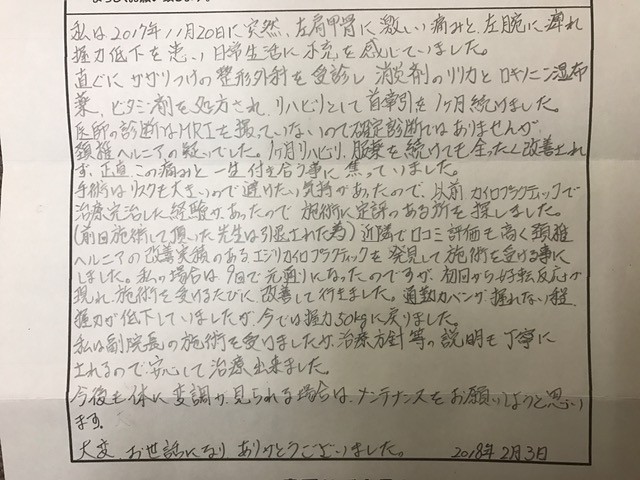 私は2017年11月20日に突然、左肩甲骨に激しい痛みと、左腕に痺れ
握力低下を患い日常生活に不充を感じていました。
直ぐにかかりつけの整形外科を受診し消炎剤のリリカとロキソニン湿布
薬、ビタミン剤を処方され、リハビリとして首牽引を1ヶ月続けました。
医師の診断はMRIを撮っていないので確定診断ではありませんが、
頚椎ヘルニアの疑いでした。1ヶ月リハビリ、服薬を続けても全ったく改善されれ
ず、正直この痛みと一生付き合う事に焦っていました。
手術はリスクも大きいので避けたい気持があったので、以前カイロプラクティックで
治療完治した経験があったので施術に定評のある所を探しました。
(前回施術して頂いた先生は引退された為)近隣で口コミ評価も高く頚椎
ヘルニアの改善実績のあるエンジリカイロプラクティックを発見して施術を受ける事に
しました。私の場合は9回で元通りになったのですが、初回から好転反応が
現れ施術を受けるたびに改善して行きました。通勤カバンが握れない程、
握力が低下していましたが、今では握力50kgに戻りました。
私は副院長の施術を受けましたが、治療方針等の説明も丁寧に
されるので安心して治療出来ました。
今後も体に変調が見られる場合は、メンテナンスをお願いしようと思い
ます。
大変、お世話になりありがとうございました。 2018年2月3日